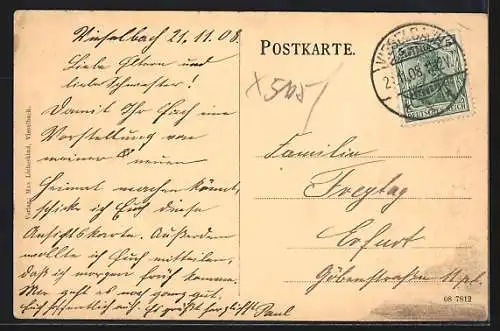 Vieselbach 21.11.08.
Liebe Eltern und
liebe Schwester!
Damit Ihr Euch eine
Vorstellung von
meiner neuen
Heimat machen könnt,
schicke ich Euch diese
Ansichtskarte. Außerdem
wollte ich Euch mitteilen,
daß ich morgen früh komme.
Mir geht es noch ganz gut,
Euch hoffentlich auch. Es grüßt herzlichst Paul
Verlag Max Liebeskind, Vieselbach.
POSTKARTE.
VIESELBACH
21.11.08
DEUTSCHES REICH
x 515
Familie
Freytag
Erfurt
Göbenstraße 11 pt.
08 7812